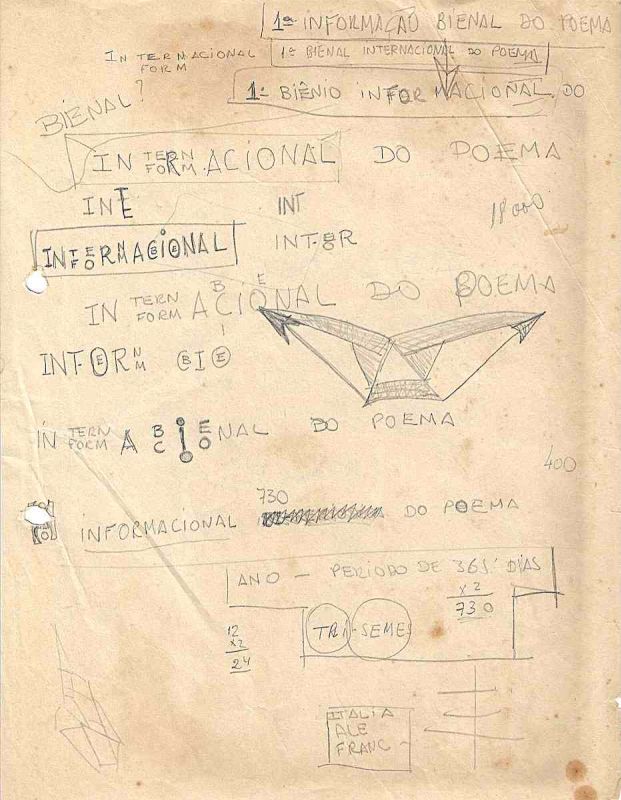 1ª INFORMAÇÃO BIENAL DO POEMA
INTERNACIONAL
FORM
1ª BIENAL INTERNACIONAL DO POEMA
1º BIÊNIO INFORMACIONAL DO
BIENAL
?
IN TERN ACIONAL DO POEMA
FORM
INTE
INT
18000
INTERNACIONAL
FO BE
INTER
O
B E
IN TERN ACIONAL DO POEMA
FORM
I
INFORM BIE
IN TERN A B I E NAL DO POEMA
FORM C O
400
730
INFORMACIONAL DO POEMA
ANO — PERÍODO DE 365 DIAS
X2
730
TRI-SEMES
12
X2
24
ITALIA
ALE
FRANC -